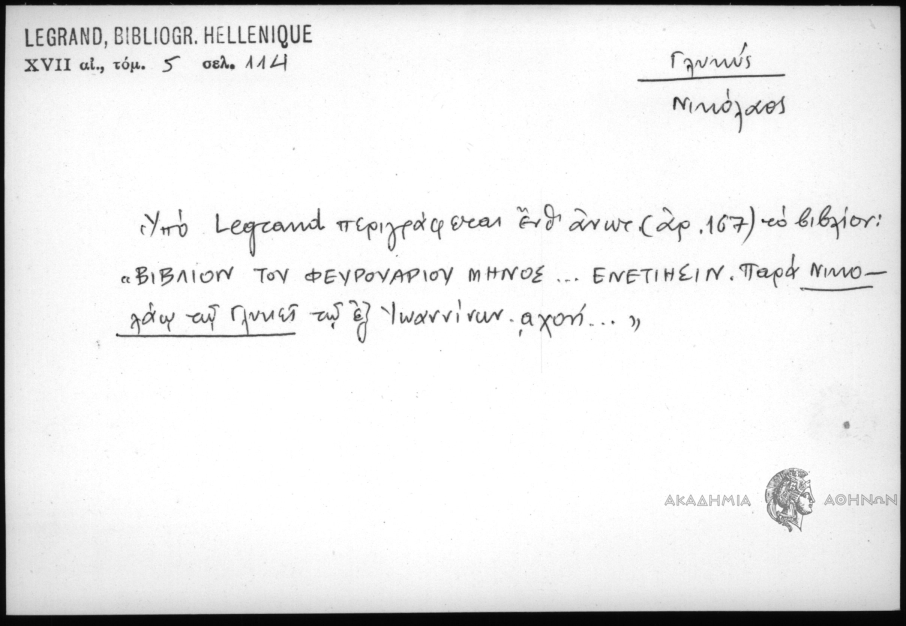 LEGRAND, BIBLIOGR. HELLENIQUE
XVII αἰ., τόμ. 5 σελ. 114
Γλυκύς
Νικόλαος
Ὑπό Legrand περιγράφεται ἔνθ' ἄνωτ. (ἀρ. 167) τό βιβλίον:
«ΒΙΒΛΙΟΝ ΤΟΥ ΦΕΥΡΟΥΑΡΙΟΥ ΜΗΝΟΣ... ΕΝΕΤΙΗΣΙΝ. Παρά Νικο-
λάῳ τῷ Γλυκεῖ τῷ ἐξ Ἰωαννίνων. ͵αχπή... »
ΑΚΑΔΗΜΙΑ ΑΘΗΝΩΝ